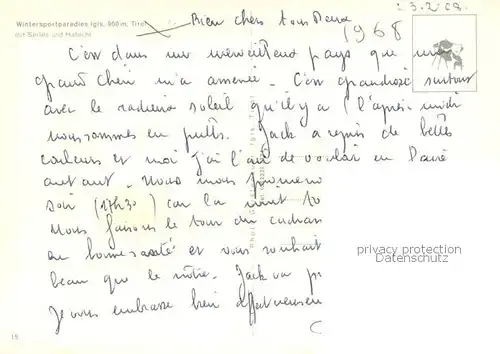 Wintersportparadies Igls, 900 m, Tirol
mit Serles und Habicht
23.2.68
Bien chers tous Deux
1968
C'est dans un merveilleux pays que mon
grand chéri m'a amenée. C'est grandiose surtout
avec le radieux soleil qu'il y a (l'après-midi
nous sommes en pulls. Jack a repris de belles
couleurs et moi j'ai l'air de vouloir en faire
autant. Nous nous promeno
soir (17h30) car la nuit to
Nous faisons le tour du cadran
en bonne santé et vous souhait
beau que le nôtre. Jack va
Je vous embrasse bien affectueusem
privacy protection
Datenschutz
15